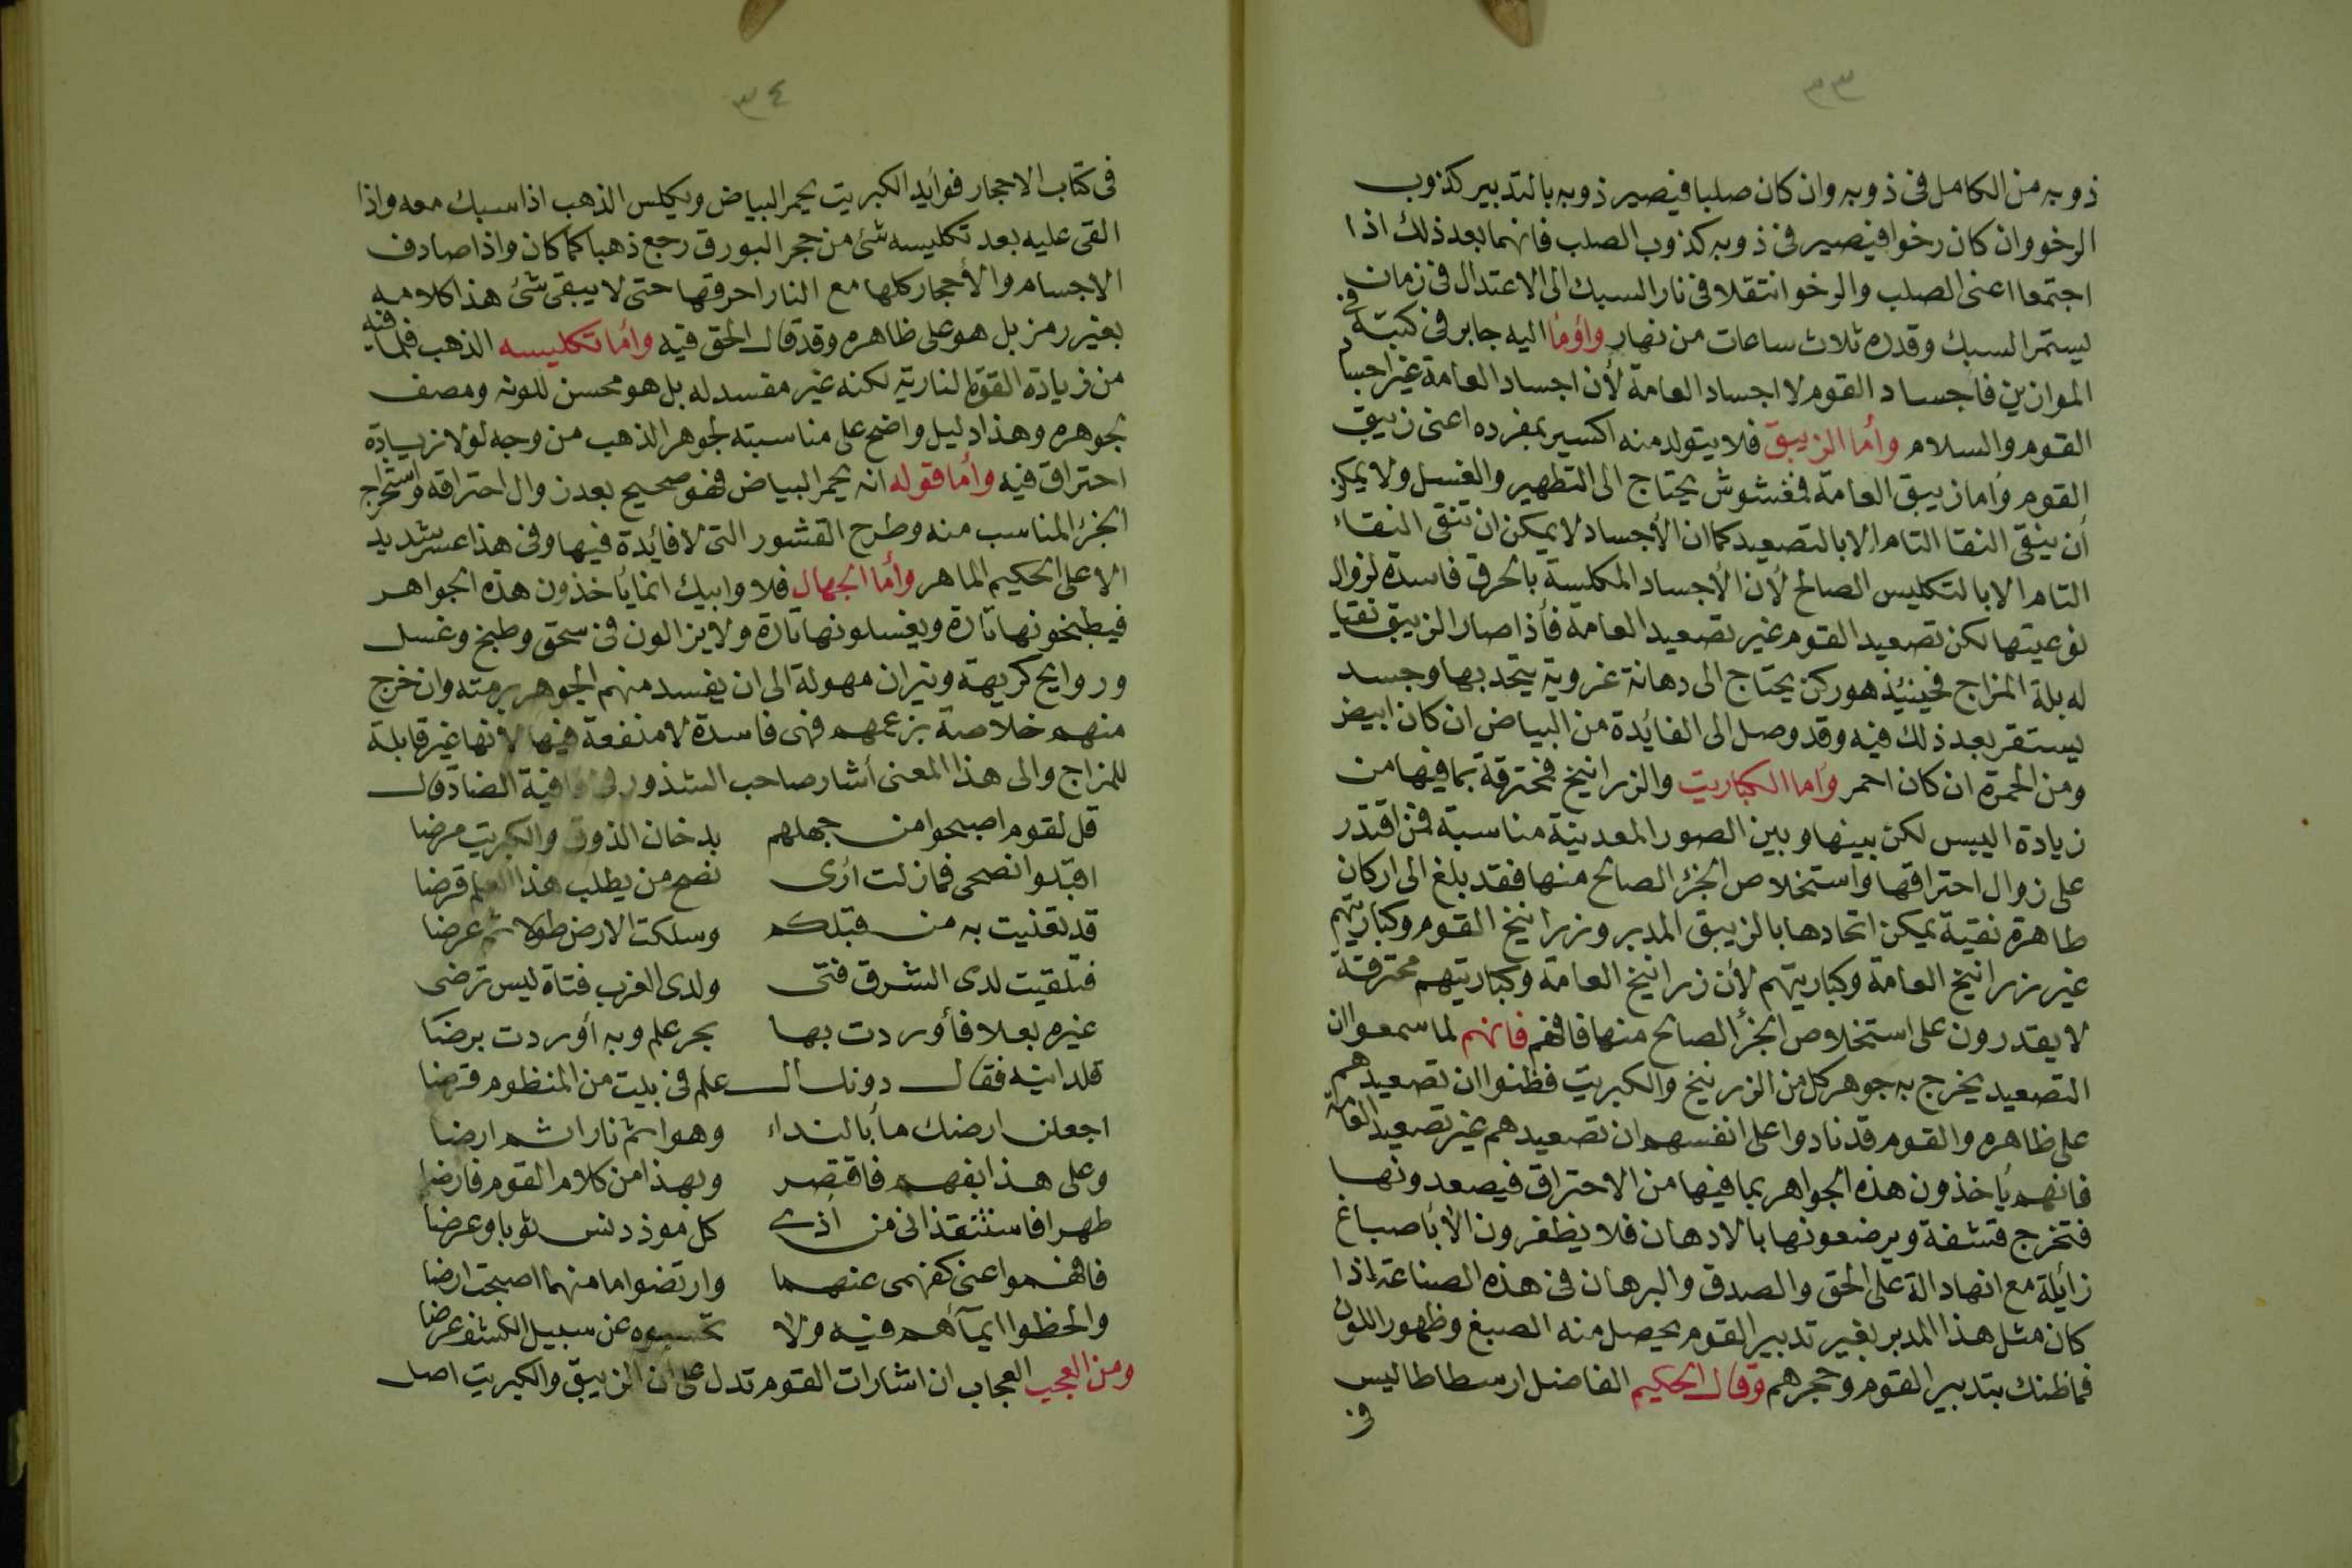 ٣٣
ذوبه من الكامل فى ذوبه وان كان صلبا فيصير ذوبه بالتدبير كذوب
الرخو وان كان رخوا فيصير فى ذوبه كذوب الصلب فانهما بعد ذلك اذا
اجتمعا اعنى الصلب والرخو انتقلا فى نار السبك الى الاعتدال فى زمان
يستمر السبك وقدره ثلاث ساعات من نهار واؤما اليه جابر فى كتبه فى
الموازين فأجساد القوم لا اجساد العامة لأن اجساد العامة غير اجسام
القوم والسلام وأما الزيبق فلا يتولد منه اكسير بمفرده اعنى زيبق
القوم وأما زيبق العامة فمغشوش يحتاج الى التطهير والغسل ولا يمكن
أن ينقى النقا التام الا بالتصعيد كما ان الأجساد لا يمكن ان تنقى النقاء
التام الا بالتكليس الصالح لأن الأجساد المكلسة بالحرق فاسدة لزوال
نوعيتها لكن تصعيد القوم غير تصعيد العامة فأذا صار الزيبق نقيا
له بلة المزاج فحينئذ هو ركن يحتاج الى دهانة غروية يتحد بها وجسد
يستقر بعد ذلك فيه وقد وصل الى الفايدة من البياض ان كان ابيض
ومن الحمرة ان كان احمر وأما الكباريت والزرانيخ فمحترقة بما فيها من
زيادة اليبس لكن بينها وبين الصور المعدنية مناسبة فمن اقتدر
على زوال احتراقها واستخلاص الجزء الصالح منها فقد بلغ الى اركان
طاهرة نقية يمكن اتحادها بالزيبق المدبر وزرانيخ القوم وكباريتهم
غير زرانيخ العامة وكباريتهم لأن زرانيخ العامة وكباريتهم محترقة
لا يقدرون على استخلاص الجزء الصالح منها فافهم فانهم لما سمعوا ان
التصعيد يخرج به جوهر كل من الزرنيخ والكبريت فظنوا ان تصعيدهم
على ظاهره والقوم قد نادوا على انفسهم ان تصعيدهم غير تصعيد العامة
فانهم يأخذون هذه الجواهر بما فيها من الاحتراق فيصعدونها
فتخرج قشفة ويرضعونها بالادهان فلا يظفرون الا بأصباغ
زائلة مع انها دالة على الحق والصدق والبرهان فى هذه الصناعة اذا
كان مثل هذا المدبر بغير تدبير القوم يحصل منه الصبغ وظهور اللون
فماظنك بتدبير القوم وحجرهم وقال الحكيم الفاضل ارسطاطاليس
فى
٣٤
فى كتاب الاحجار فوايد الكبريت يحمر البياض ويكلس الذهب اذا سبك معه واذا
القى عليه بعد تكليسه شئ من حجر البورق رجع ذهبا كما كان واذا صادف
الاجسام والأحجار كلها مع النار احرقها حتى لا يبقى شئ هذا كلامه
بغير رمز بل هو على ظاهره وقد قال الحق فيه وأما تكليسه الذهب فلما فيه
من زيادة القوة النارية لكنه غير مفسد له بل هو محسن للونه ومصف
بجوهره وهذا دليل واضح على مناسبته لجوهر الذهب من وجه لولا زيادة
احتراق فيه وأما قوله انه يحمر البياض فهو صحيح بعد زوال احتراقه واستخراج
الجزء المناسب منه وطرح القشور التى لا فائدة فيها وفى هذا عسر شديد
الا على الحكيم الماهر وأما الجهال فلا وابيك انما يأخذون هذه الجواهر
فيطبخونها تارة ويغسلونها تارة ولا يزالون فى سحق وطبخ وغسل
وروايح كريهة ونيران مهولة الى ان يفسد منهم الجوهر برمته وان خرج
منهم خلاصة بزعمهم فهى فاسدة لا منفعة فيها لأنها غير قابلة
للمزاج والى هذا المعنى أشار صاحب الشذور فى قافية الضاد قال
قل لقوم اصبحوا من جهلهم بدخان الذوق والكبريت مرضا
اقبلوا نصحى فما زلت ارى نصح من يطلب هذا العلم قرضا
قد تغذيت به من قبلكم وسلكت الارض طولا ثم عرضا
فتلقيت لدى الشرق فتى ولدى الغرب فتاة ليس ترضى
غيره بعلا فأوردت بها بحر علم وبه أوردت برضا
فقال دونك العلم فى بيت من المنظوم قرضا
اجعلن ارضك مأ بالنداء وهوا ثم نارا ثم ارضا
وعلى هذا بفهم فاقتصر وبهذا من كلام القوم فارضا
طهرا فاستنقذانى من أذى كل موذ دنس ثوبا وعرضا
فافهموا عنى كفهمى عنهما وارتضوا ما منهما اصبحت ارضا
والحظوا ايمآهم فيه ولا تحسبوه عن سبيل الكشف عرضا
ومن العجيب العجاب ان اشارات القوم تدل على ان الزيبق والكبريت اصل